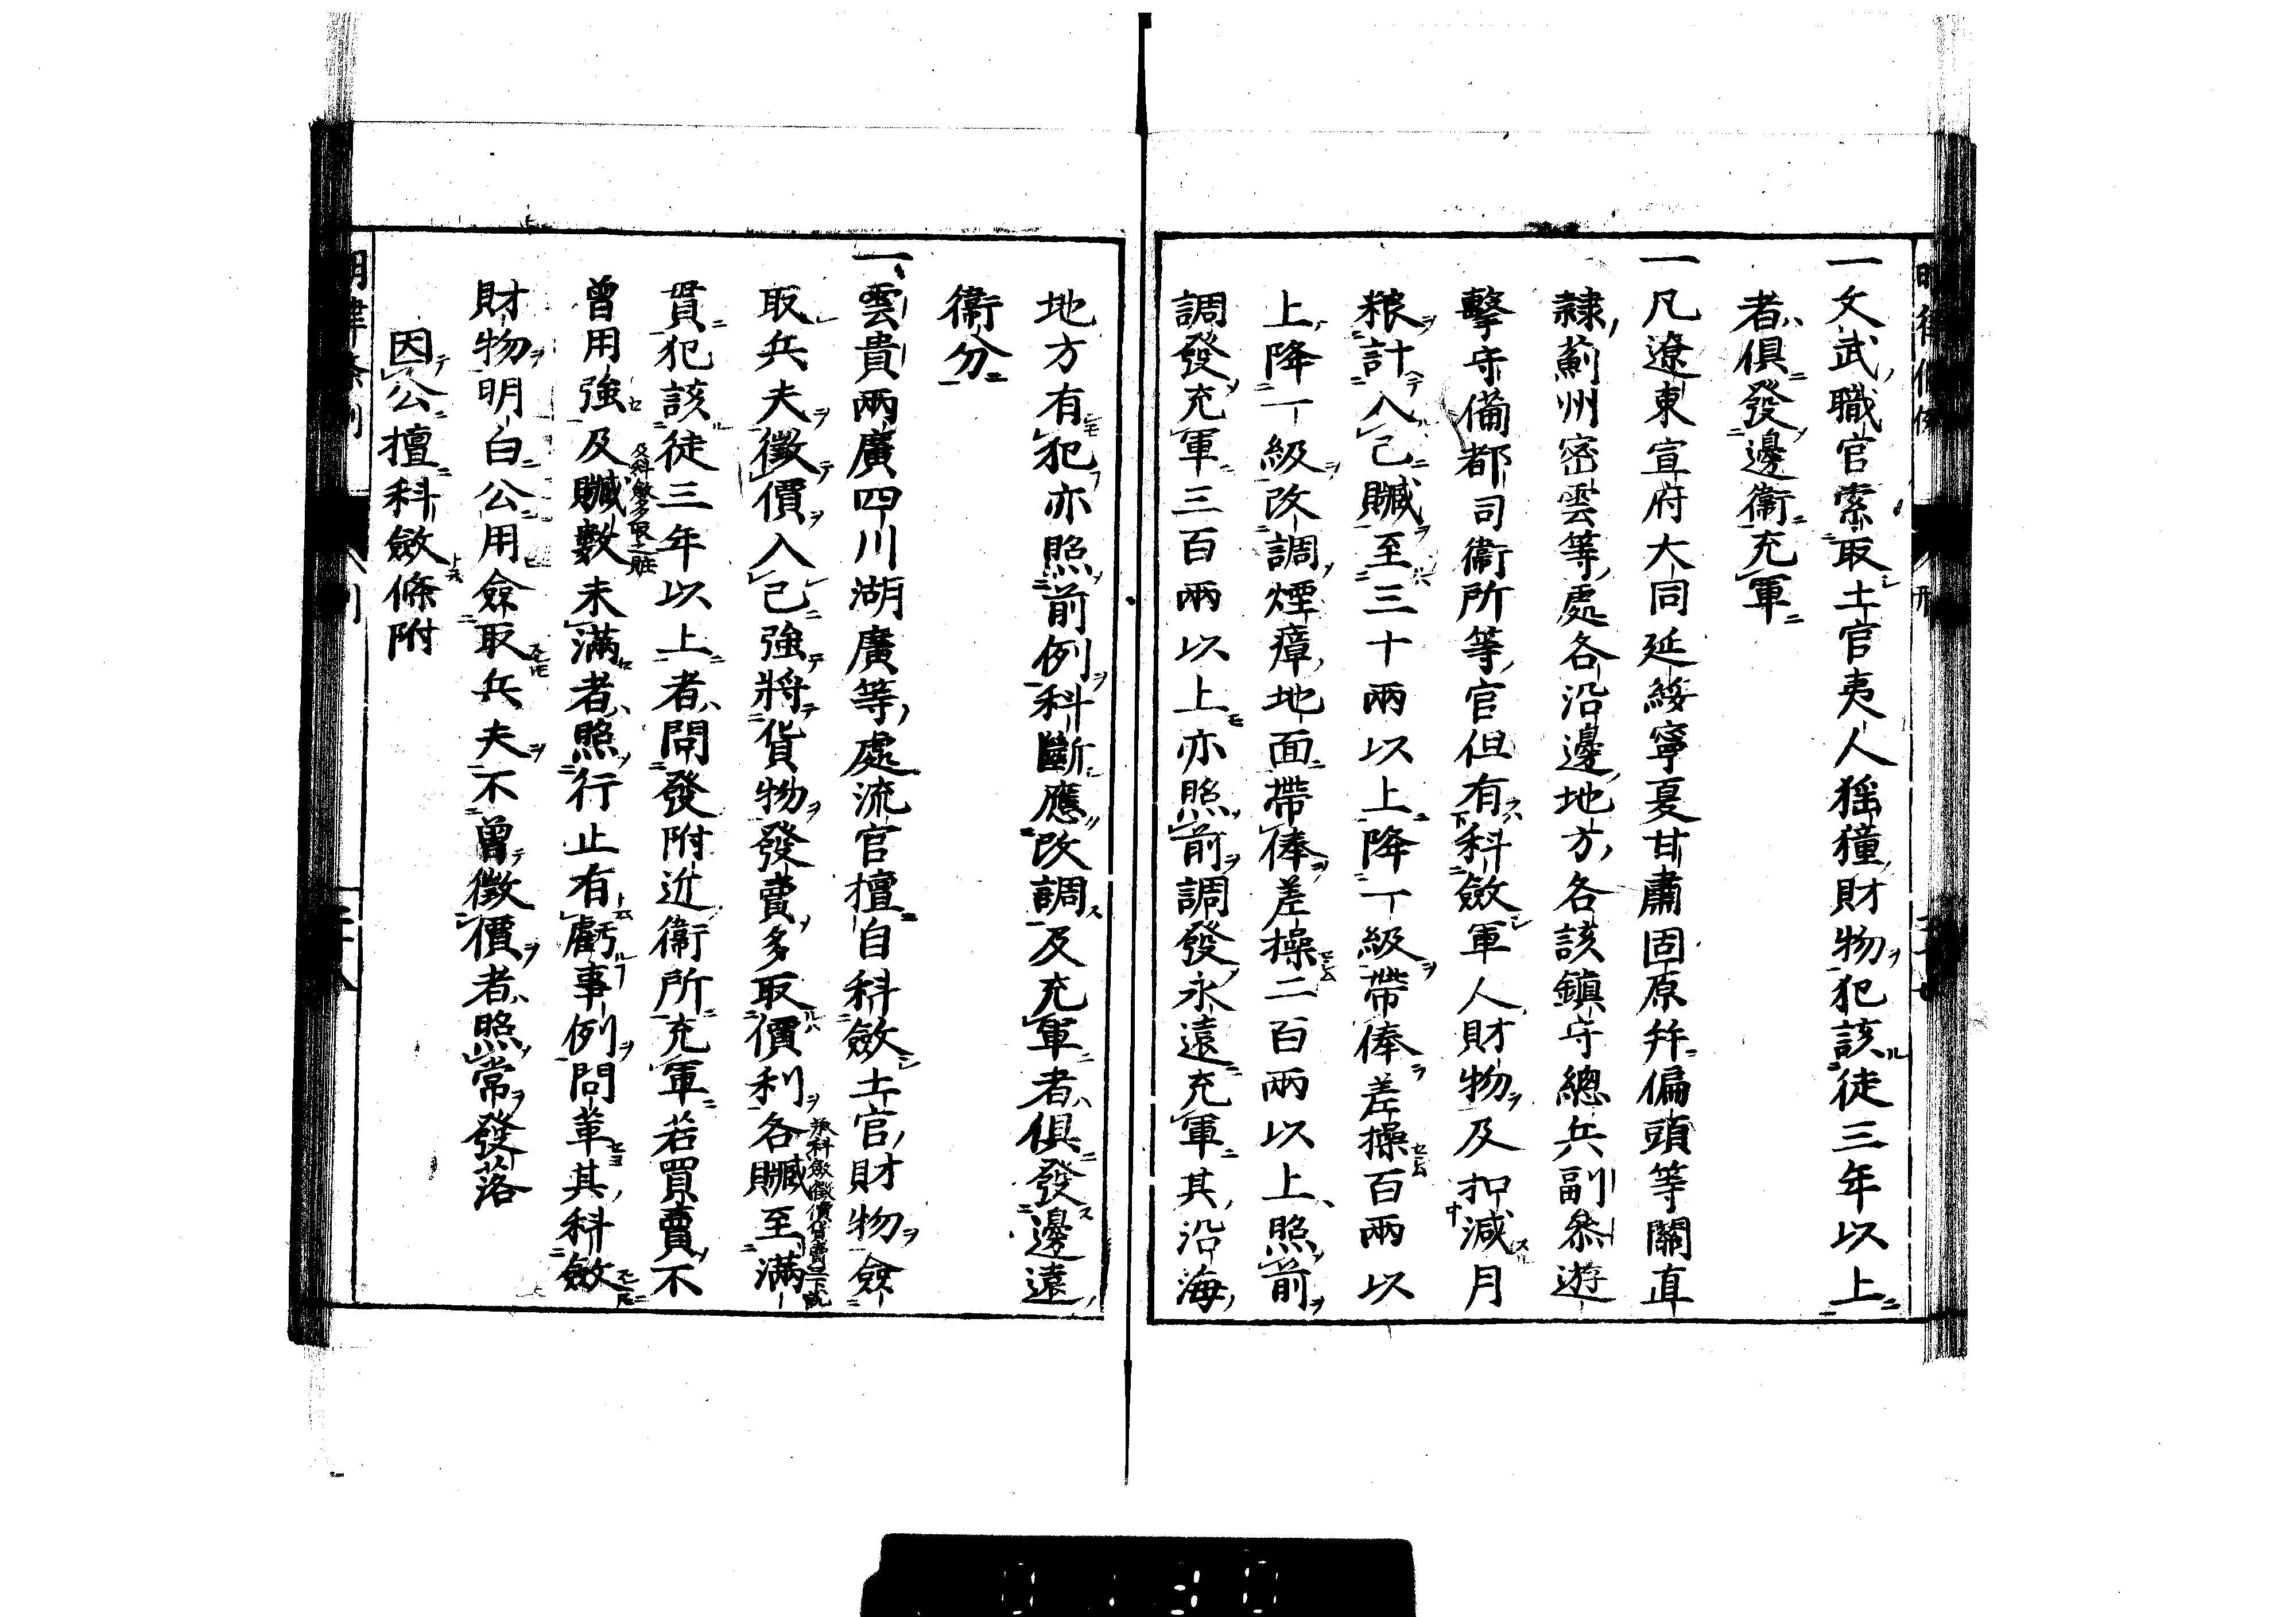 一文武職官索取土官夷人猺獞財物犯該徒三年以上
者俱發邊衞充軍
一凡遼東宣府大同延綏寧夏甘肅固原幷偏頭等關直
隸薊州密雲等處各沿邊地方各該鎮守總兵副叅遊
擊守備都司衞所等官但有科斂軍人財物及扣減月
粮計入己贓至三十兩以上降一級帶俸差操百兩以
上降一級改調煙瘴地面帶俸差操二百兩以上照前
調發充軍三百兩以上亦照前調發永遠充軍其沿海
地方有犯亦照前例科斷應改調及充軍者俱發邊遠
衞分
一雲貴兩廣四川湖廣等處流官擅自科斂土官財物僉
取兵夫徵價入己強將貨物發賣多取價利各贓至滿
貫犯該徒三年以上者問發附近衞所充軍若買賣不
曾用強及贓數未滿者照行止有虧事例問革其科斂
財物明白公用僉取兵夫不曾徵價者照常發落
因公擅科斂條附